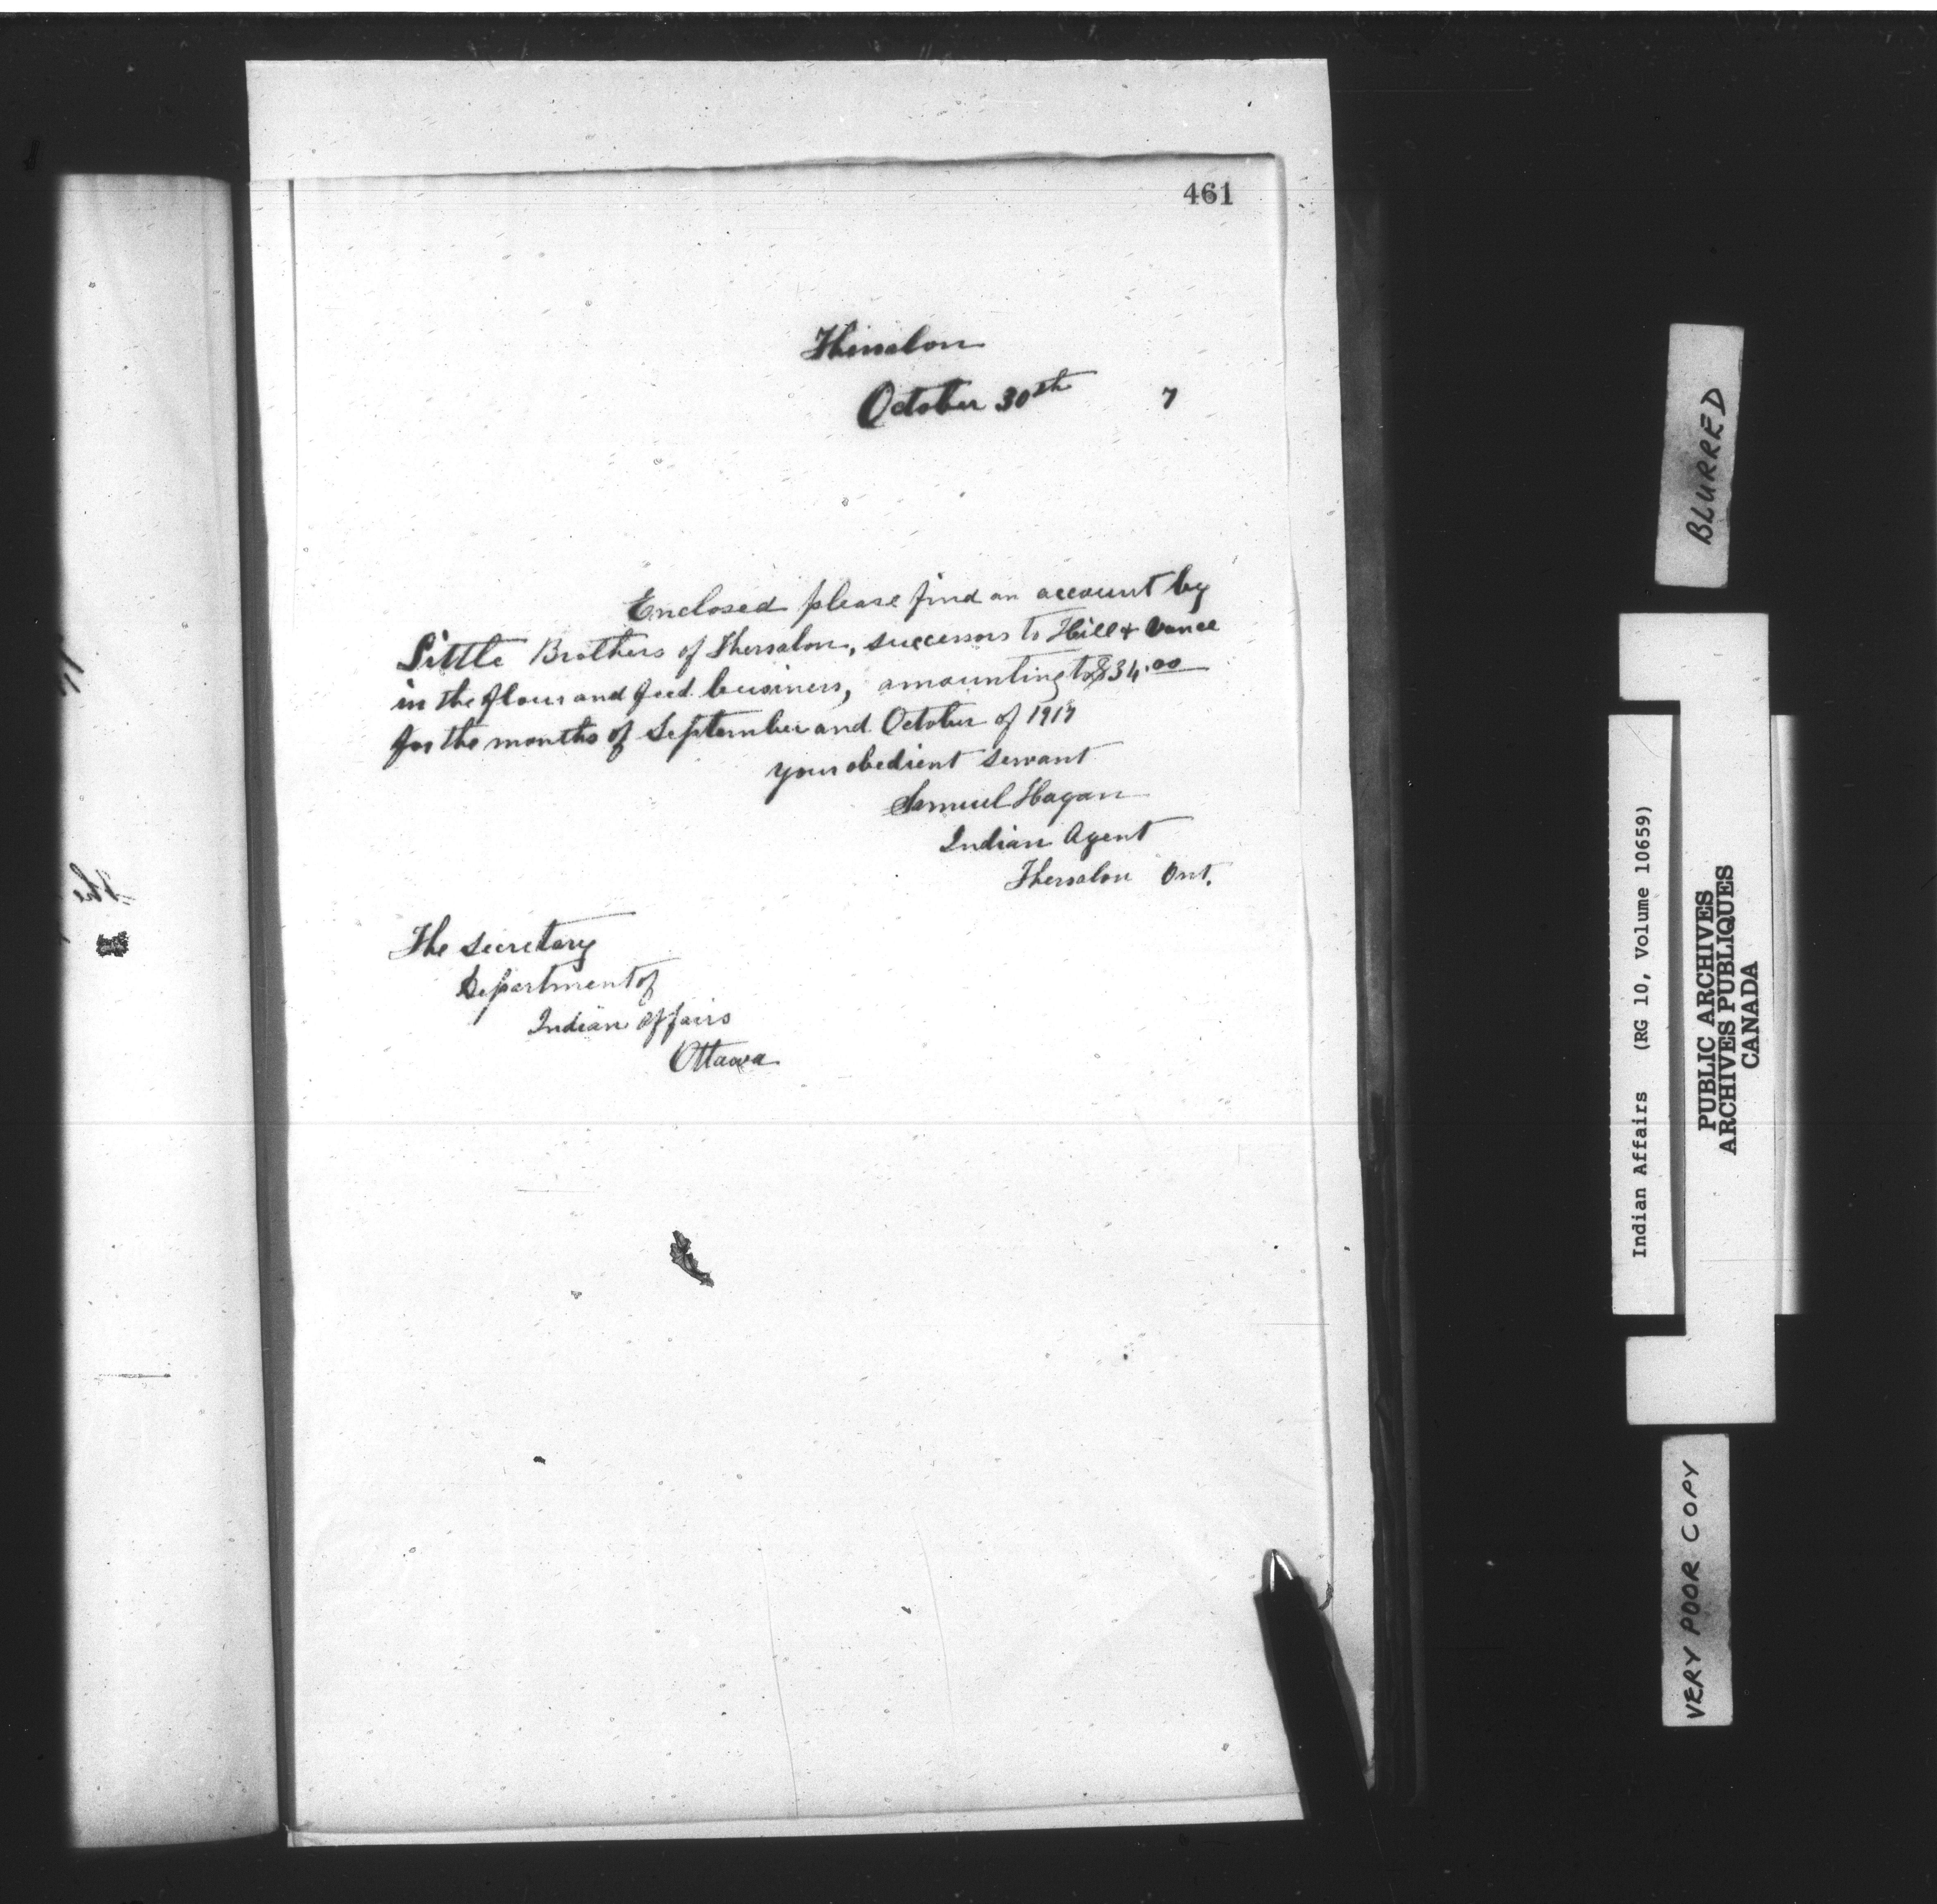 461
Thessalon
October 30th 7
Enclosed please find an account by
Little Brothers of Thessalon, successors to Hill & Vance
in the flour and feed business, amounting to $34.00
for the months of September and October of 1917
your obedient servant
Samuel Hagan
Indian Agent
Thessalon Ont.
The Secretary
Department of
Indian Affairs
Ottawa
BLURRED
Indian Affairs (RG 10, Volume 10659)
PUBLIC ARCHIVES
ARCHIVES PUBLIQUES
CANADA
VERY POOR COPY